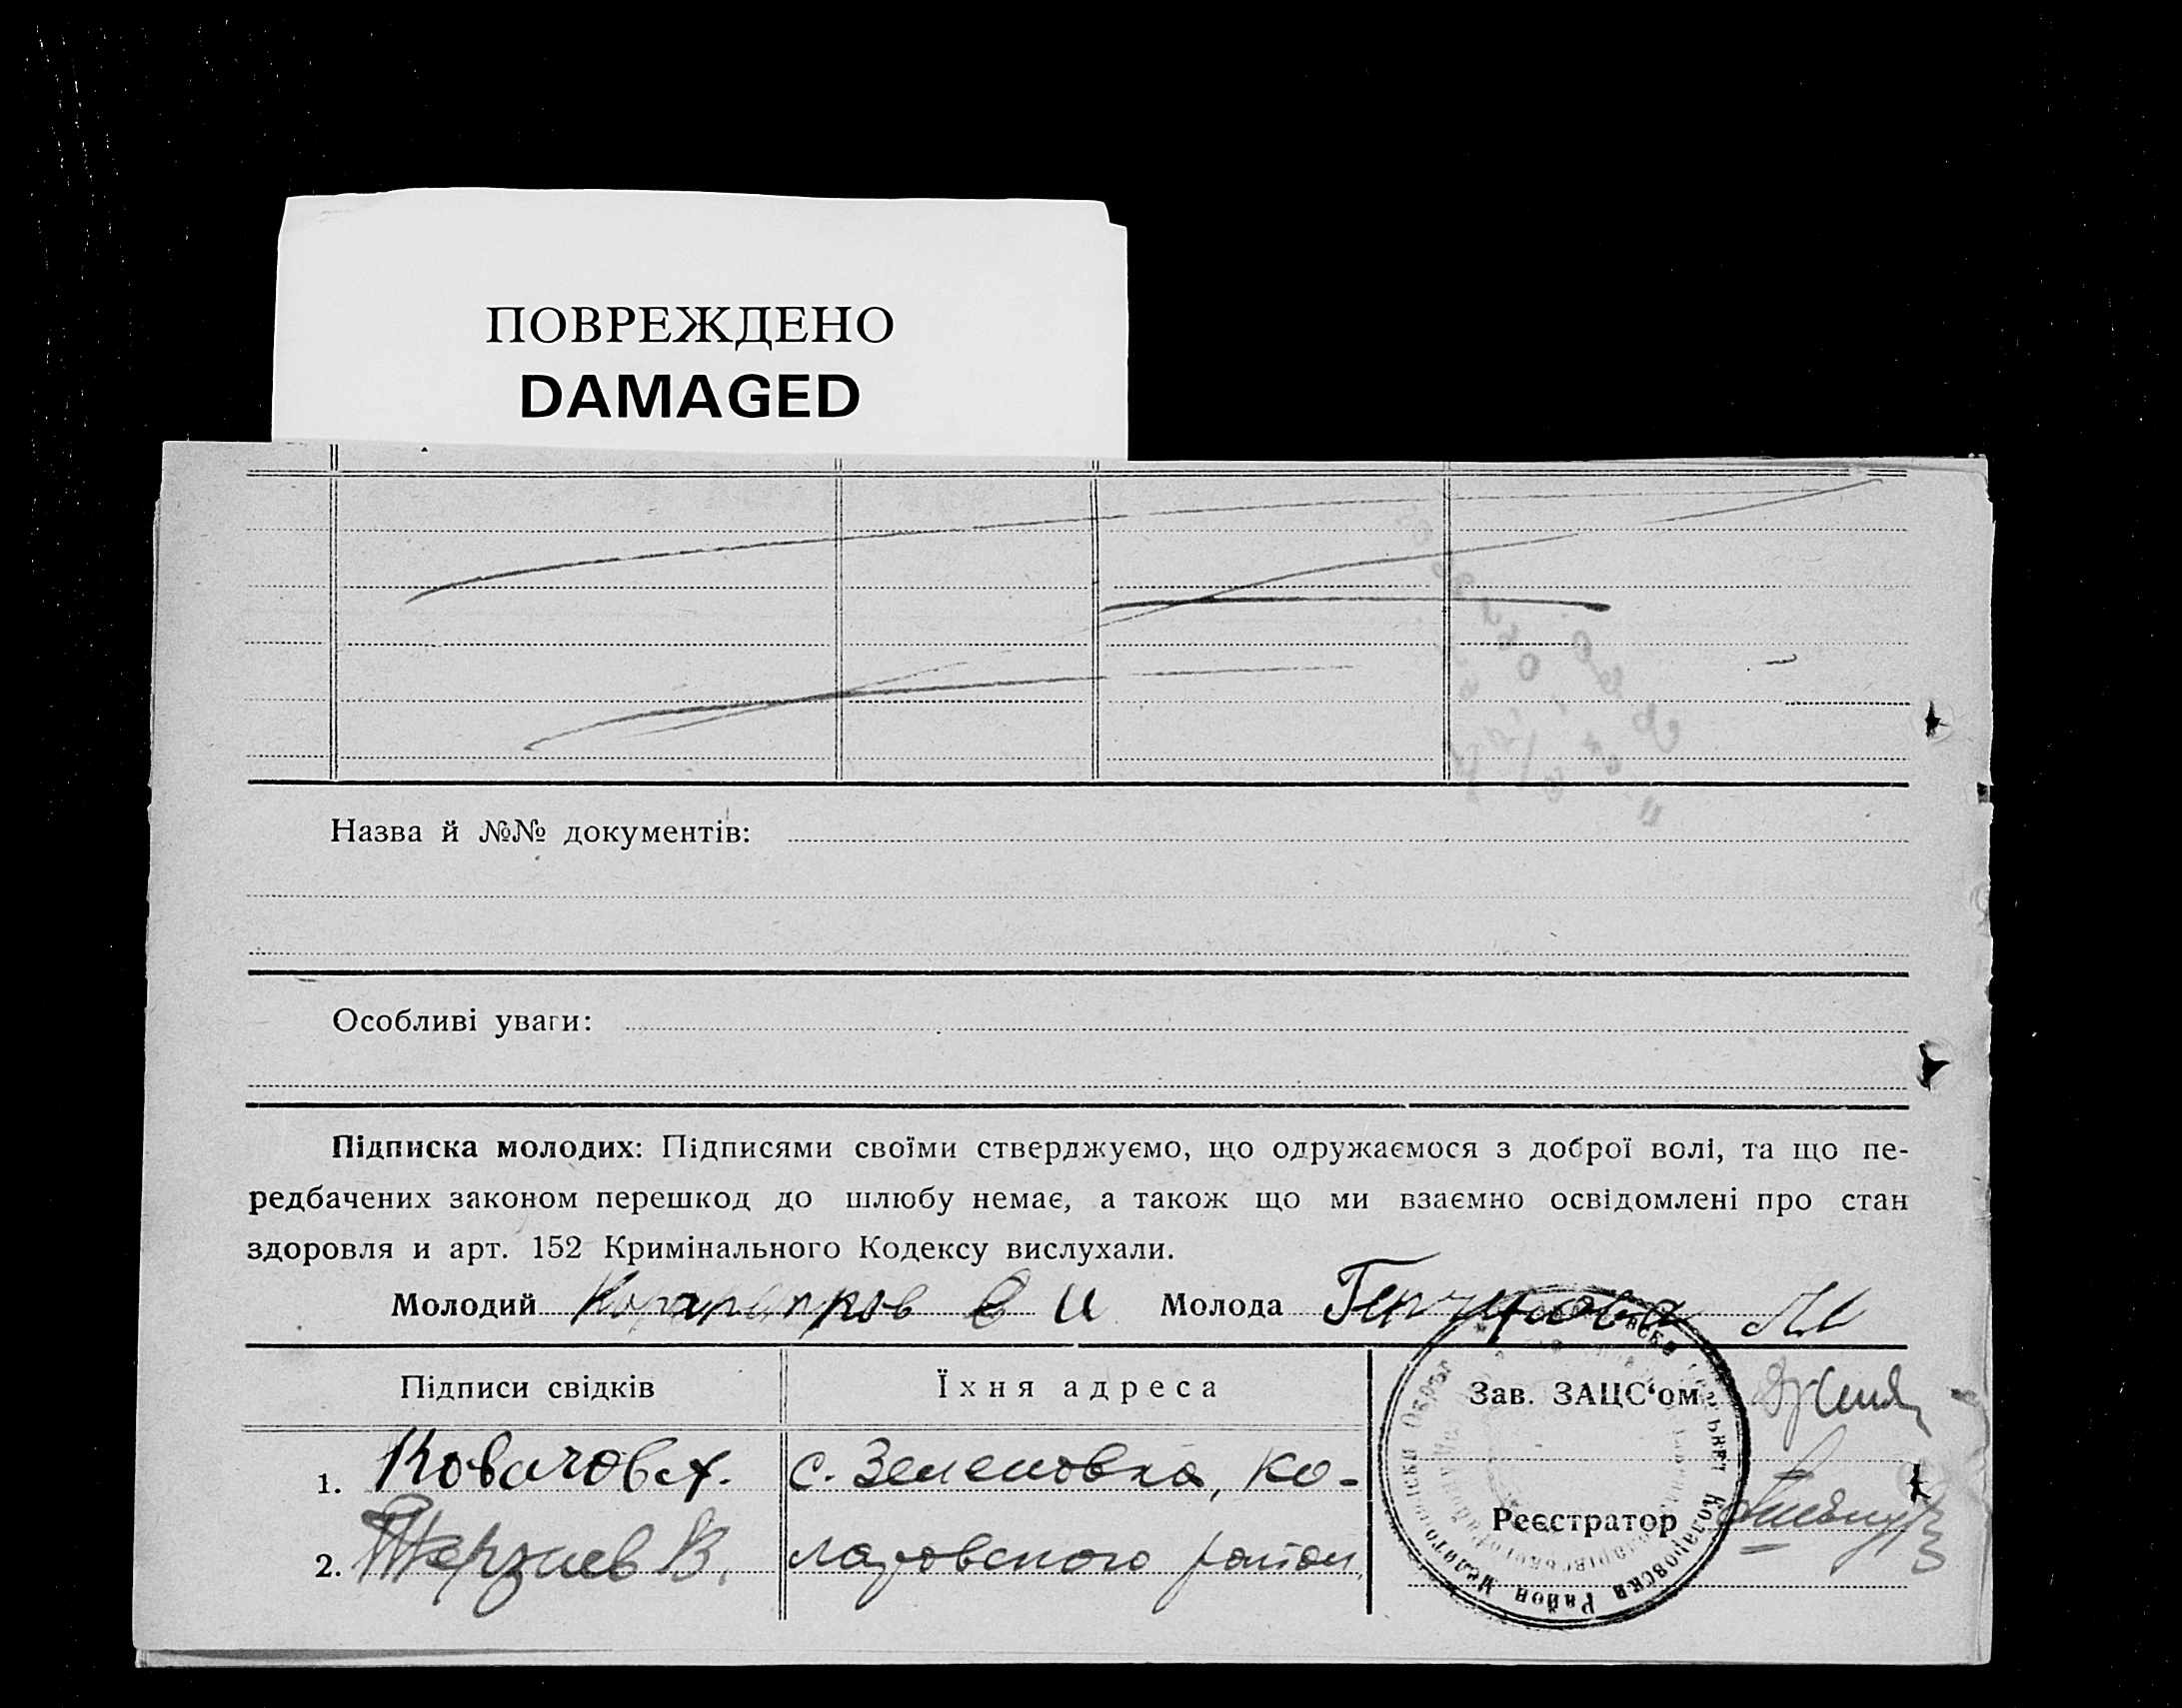 ПОВРЕЖДЕНО
DAMAGED
Назва й №№ документів:
Особливі уваги:
Підписка молодих: Підписями своїми стверджуємо, що одружаємося з доброї волі, та що пе-
редбачених законом перешкод до шлюбу немає, а також що ми взаємно освідомлені про стан
здоровля и арт. 152 Кримінального Кодексу вислухали.
Молодий И Молода
Підписи свідків Їхня адреса Зав. ЗАЦС‘ом
1. Ковачов А. с. Зеленовка, Ко-
Реєстратор
2. Терзиев В. ларовского район
Коларовски Район Мелитополски Окръг